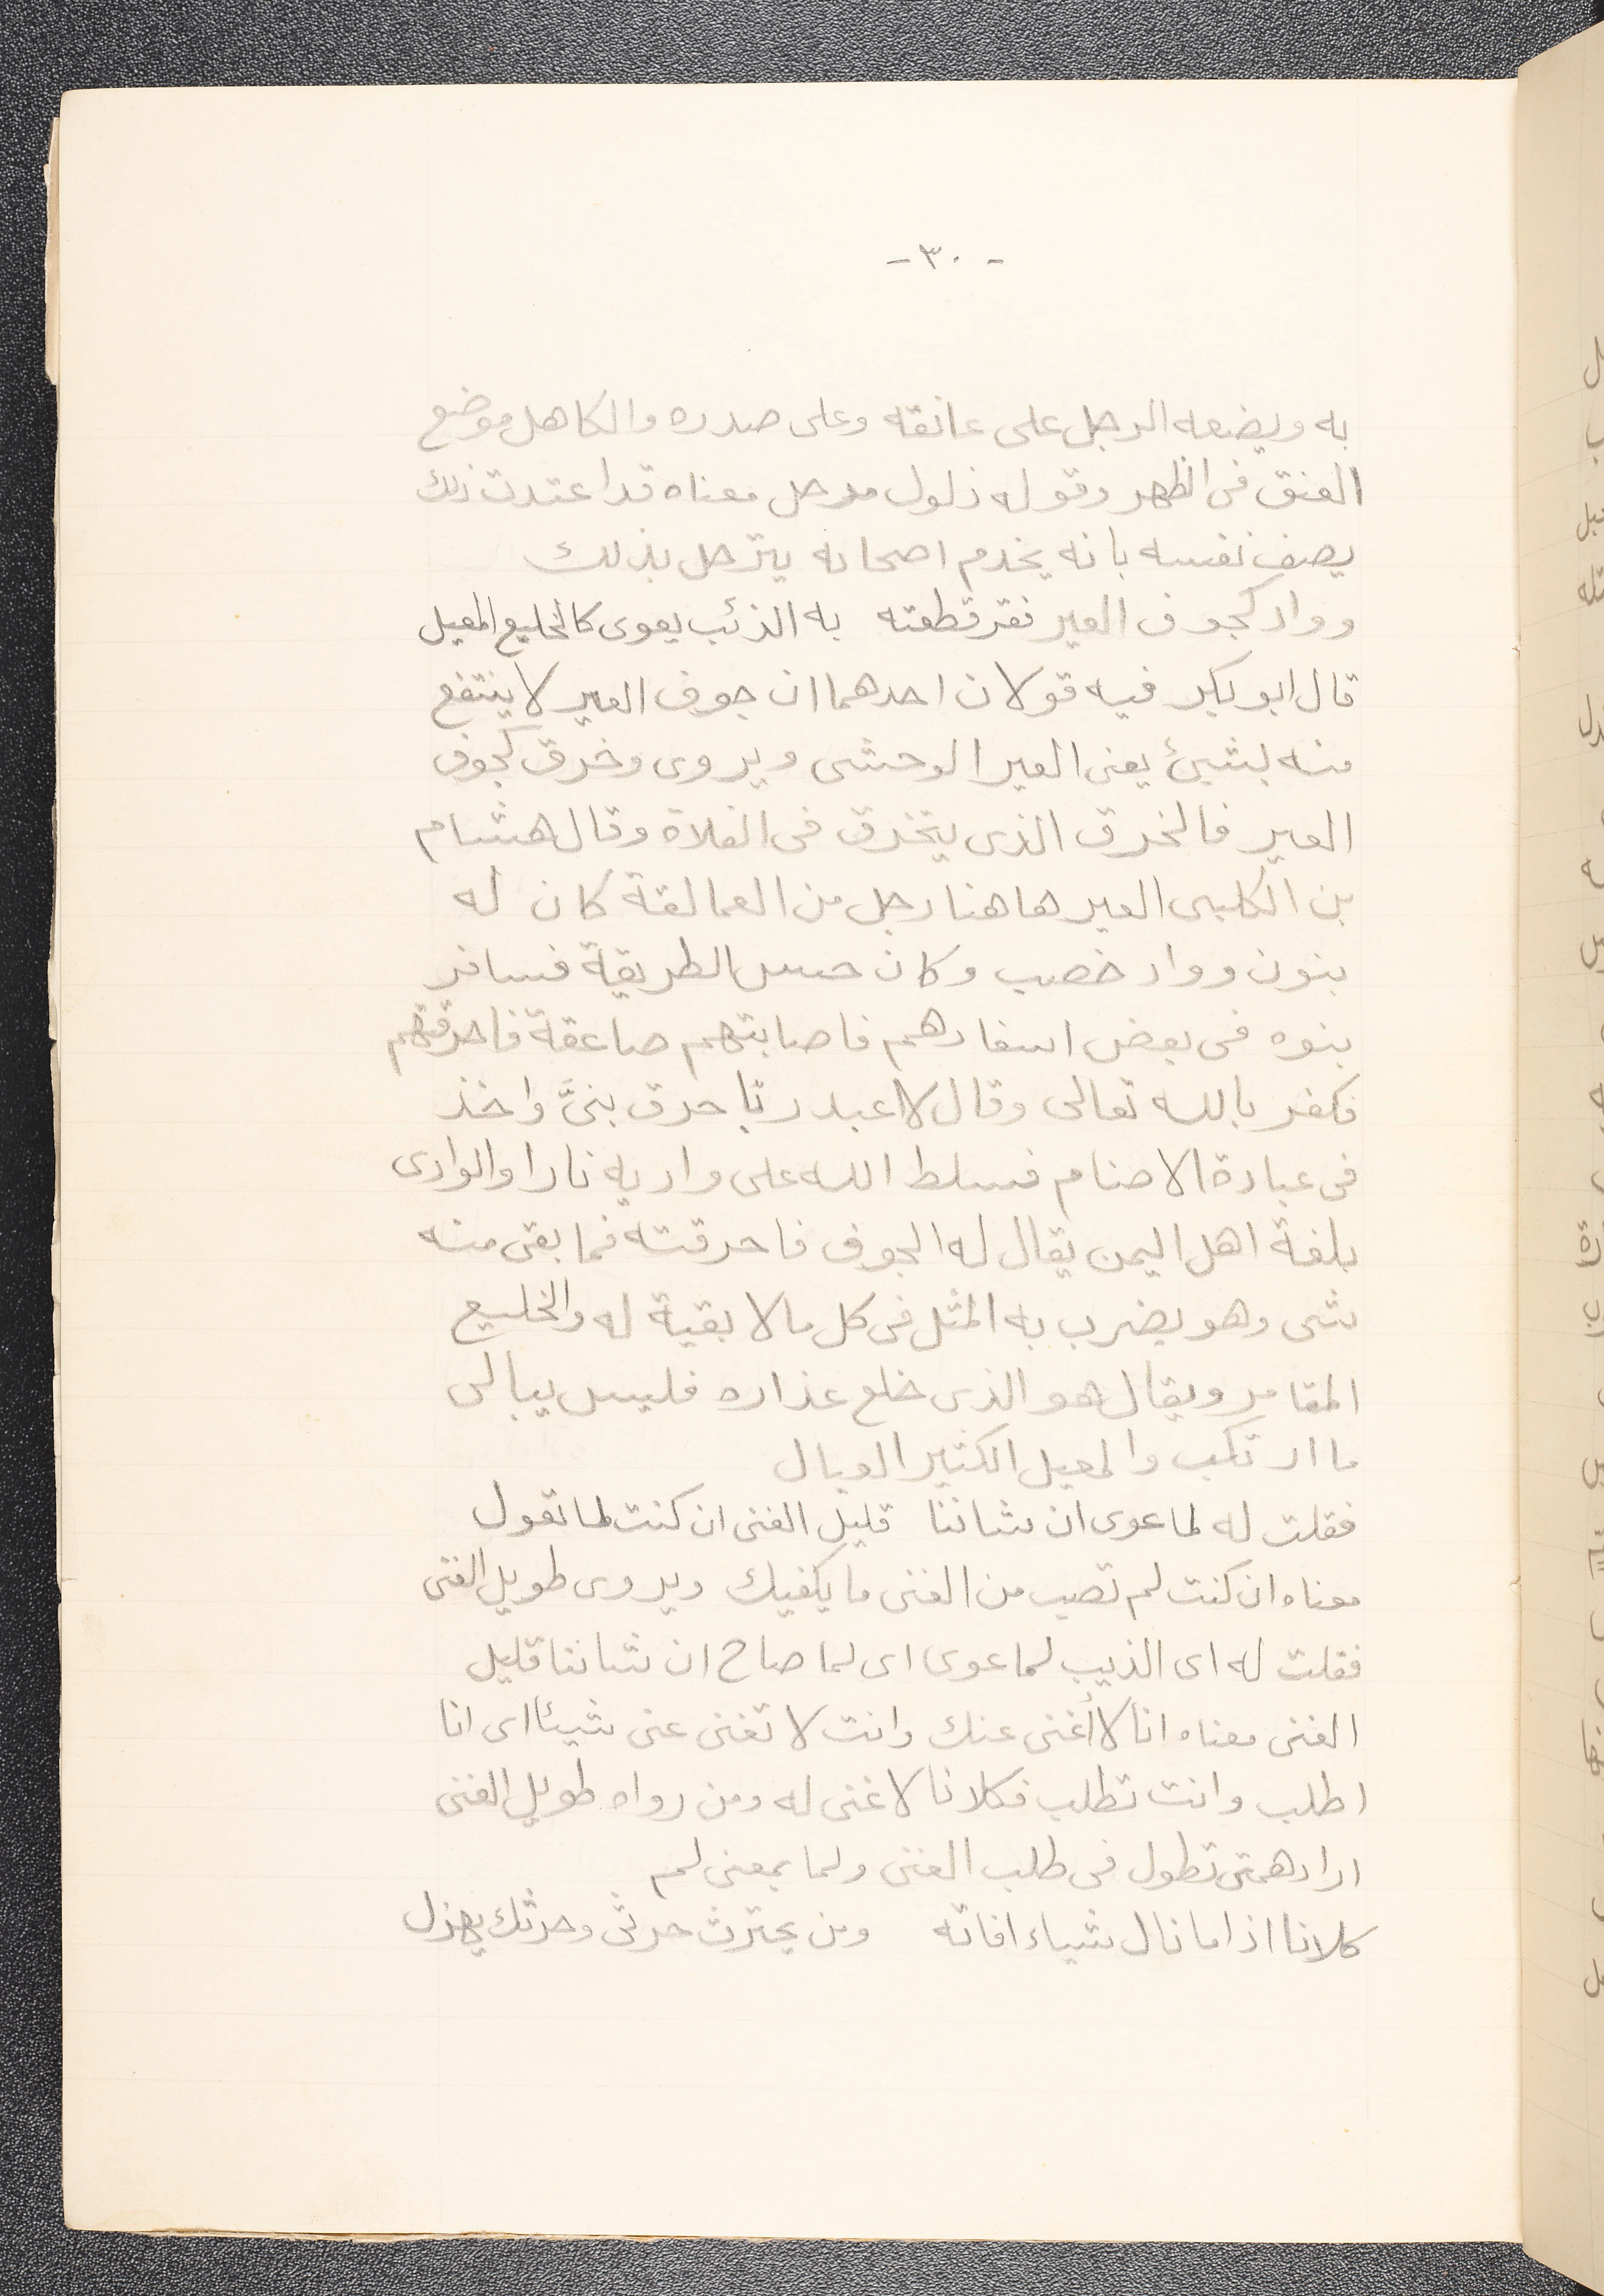 - ٣٠ -
به ويضعه الرجل على عاتقه وعلى صدره والكاهل موضع
العنق فى الظهر وقوله ذلول مرحل معناه قد اعتدت ذلك
يصف نفسه بانه يخدم اصحابه يترحل بذلك
وواد كجوف العير قفر قطعته به الذئب يعوى كالخليع المعيل
قال ابو بكر فيه قولان احدهما ان جوف العير لا ينتفع
منه بشيئ يعنى العير الوحشى ويروى وخرق كجوف
العير فالخرق الذى يتخرق فى الفلاة وقال هشام
بن الكلبى العير هاهنا رجل من العمالقة كان له
بنون وواد خصب وكان حسن الطريقة فسافر
بنوه فى بعض اسفارهم فاصابتهم صاعقة فاحرقتهم
فكفر بالله تعالى وقال لا اعبد ربًا حرق بنىَّ واخذ
فى عبادة الاصنام فسلط الله على واديه نارا والوادى
بلغة اهل اليمن يقال له الجوف فاحرقته فما بقى منه
شى وهو يضرب به المثل فى كل مالا بقية له والخليع
المقامر ويقال هو الذى خلع عذاره فليس يبالى
ما ارتكب والمعيل الكثير العيال
فقلت له لما عوى ان شاننا قليل الغنى ان كنت لما تمول
معناه ان كنت لم تصب من الغنى ما يكفيك ويروى طويل الغنى
فقلت له اى الذيب لما عوى اى لما صاح ان شاننا قليل
الغنى معناه انا لا أغنى عنك وانت لا تغنى عنى شيئا اى انا
اطلب وانت تطلب فكلانا لا غنى له ومن رواه طويل الغنى
اراد همتى تطول فى طلب الغنى ولما بمعنى لم
كلانا اذا ما نال شياء افاته ومن يحترث حرثى وحرثك يهزل